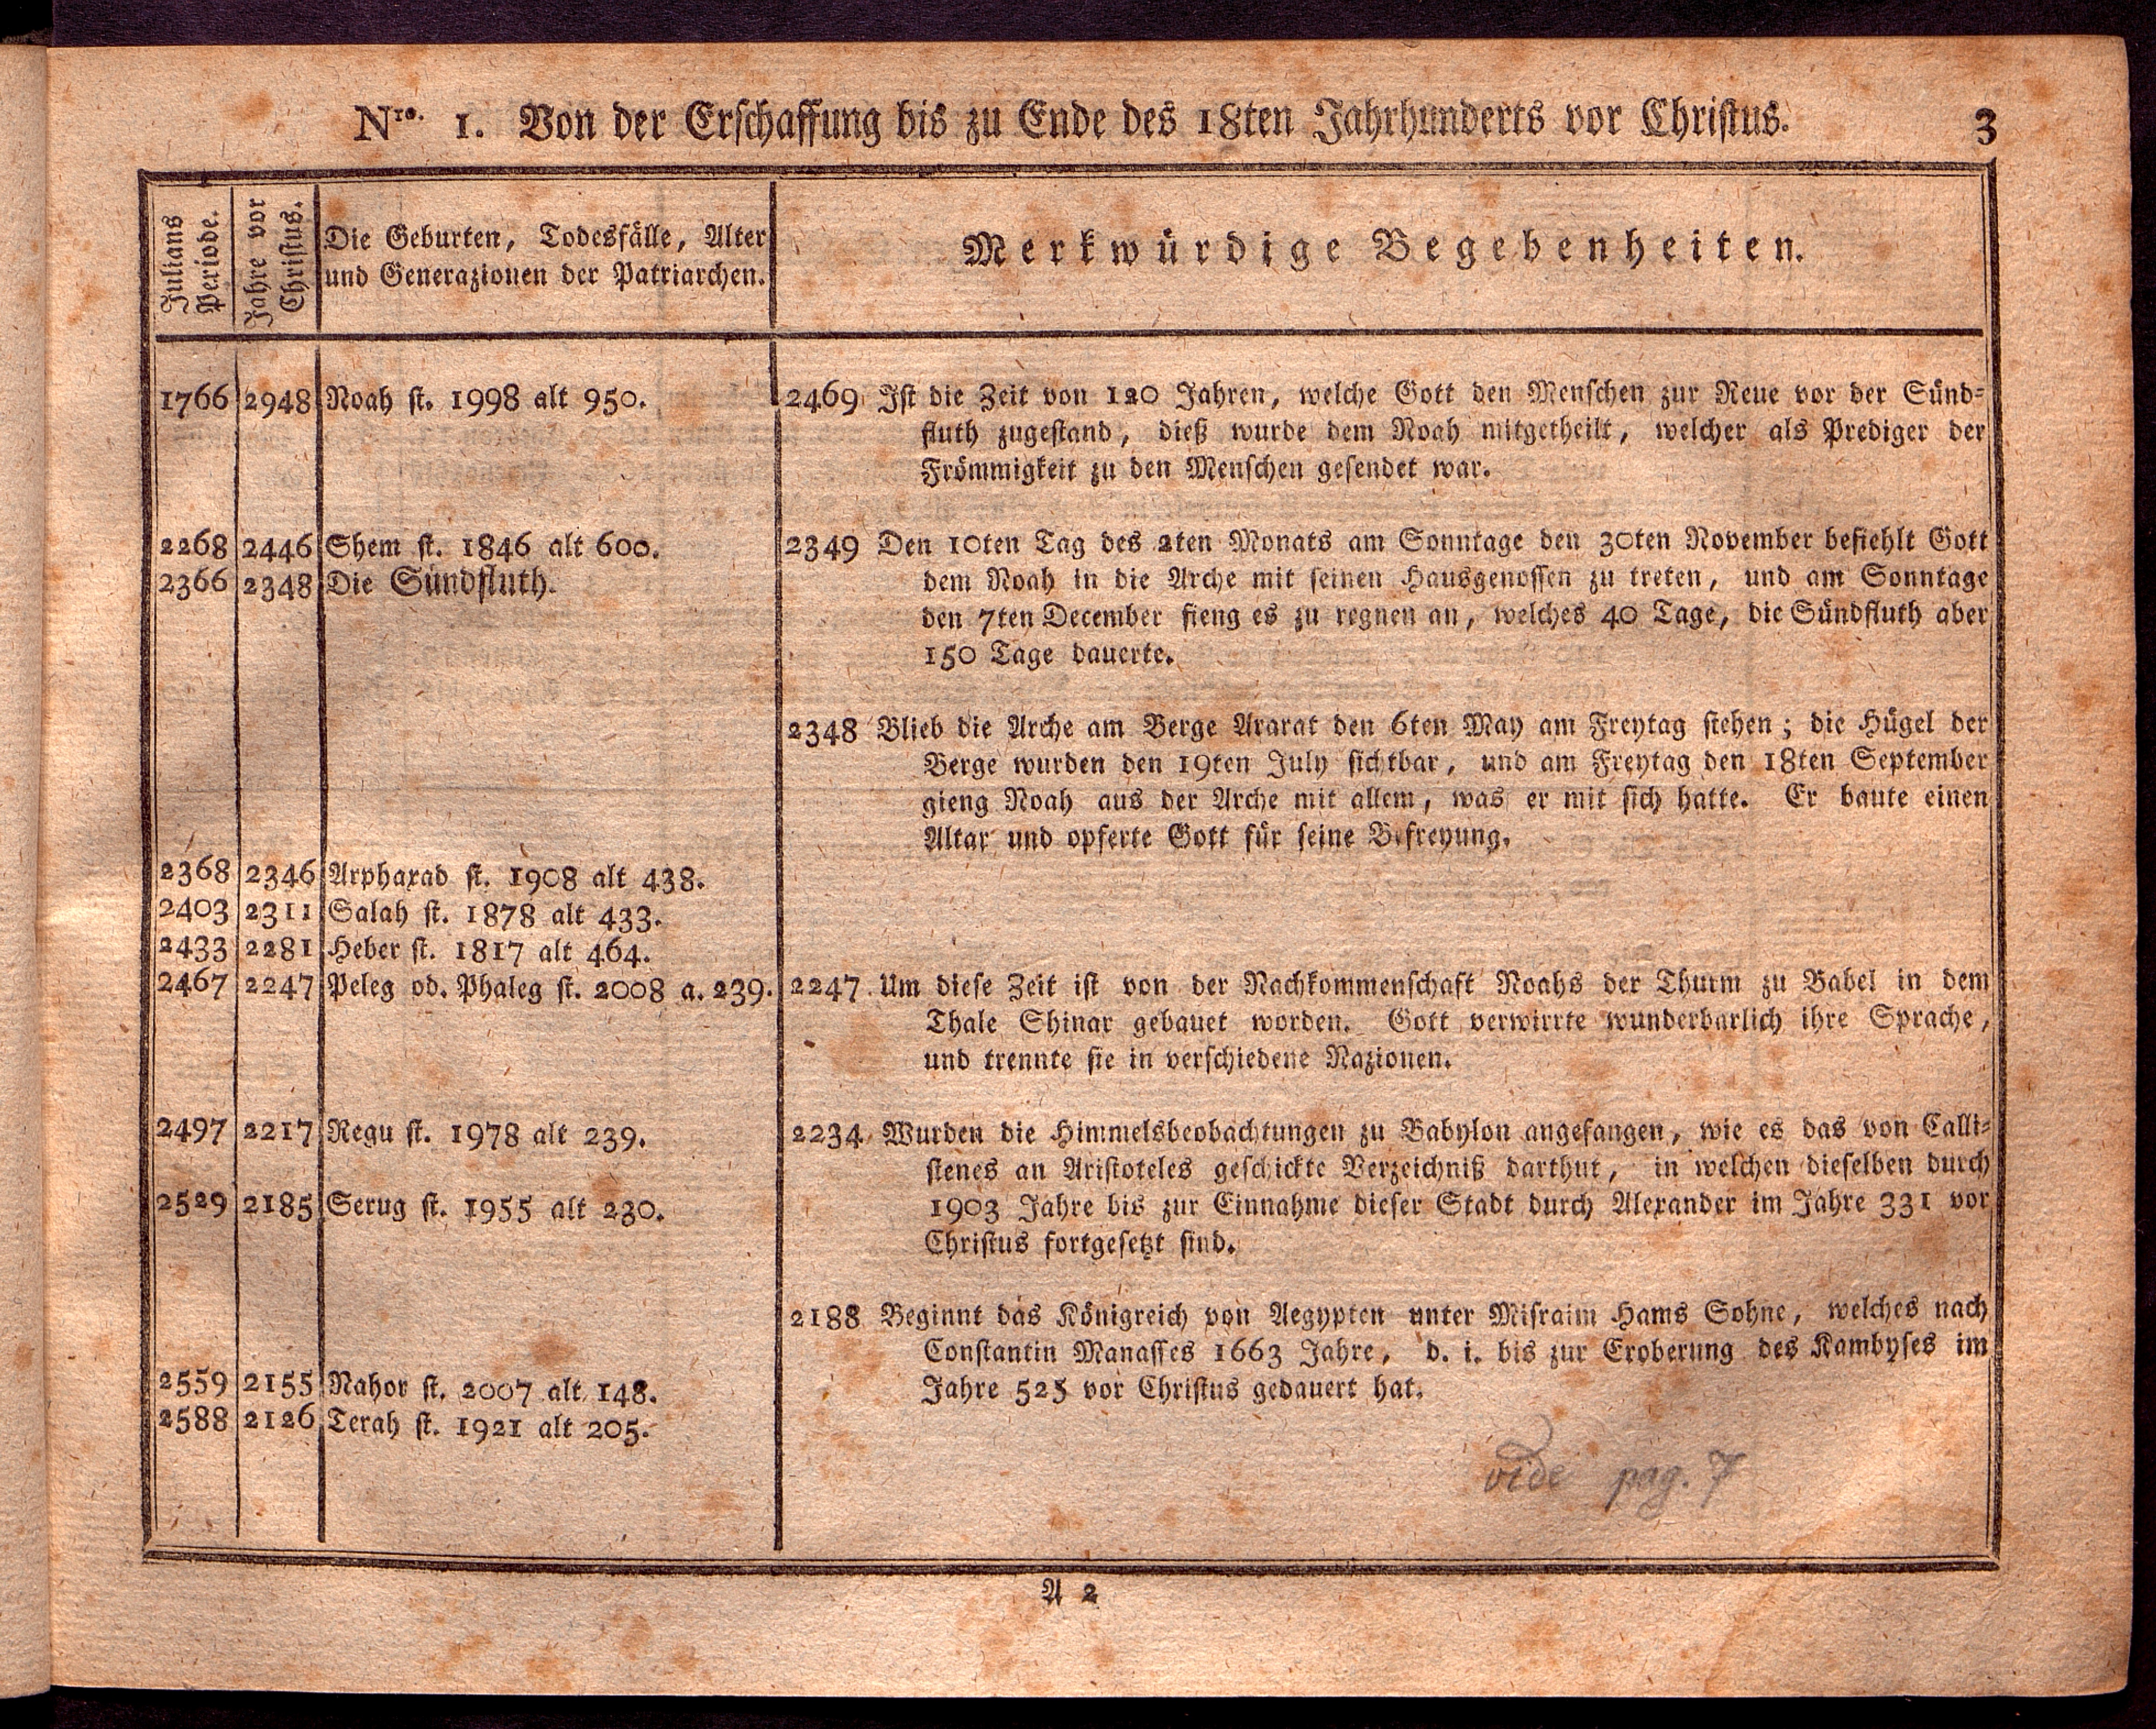 Nro. 1. Von der Erschaffung bis zu Ende des 18ten Jahrhunderts vor Christus. 3
Julians
Periode.
Jahre vor
Christus.
Die Geburten, Todesfälle, Alter
und Generazionen der Patriarchen.
Merkwürdige Begebenheiten.
1766 2948 Noah st. 1998 alt 950.
2268 2446 Shem st. 1846 alt 600.
2366 2348 Die Sündfluth.
2368 2346 Arphaxad st. 1908 alt 438.
2403 2311 Salah st. 1878 alt 433.
2433 2281 Heber st. 1817 alt 464.
2467 2247 Peleg od. Phaleg st. 2008 a. 239.
2497 2217 Regu st. 1978 alt 239.
2529 2185 Serug st. 1955 alt 230.
2559 2155 Nahor st. 2007 alt 148.
2588 2126 Terah st. 1921 alt 205.
2469 Ist die Zeit von 120 Jahren, welche Gott den Menschen zur Reue vor der Sünd-
fluth zugestand, dieß wurde dem Noah mitgetheilt, welcher als Prediger der
Frömmigkeit zu den Menschen gesendet war.
2349 Den 10ten Tag des 2ten Monats am Sonntage den 30ten November befiehlt Gott
dem Noah in die Arche mit seinen Hausgenossen zu treten, und am Sonntage
den 7ten December fieng es zu regnen an, welches 40 Tage, die Sündfluth aber
150 Tage dauerte.
2348 Blieb die Arche am Berge Ararat den 6ten May am Freytag stehen; die Hügel der
Berge wurden den 19ten July sichtbar, und am Freytag den 18ten September
gieng Noah aus der Arche mit allem, was er mit sich hatte. Er baute einen
Altar und opferte Gott für seine Befreyung.
2247 Um diese Zeit ist von der Nachkommenschaft Noahs der Thurm zu Babel in dem
Thale Shinar gebauet worden. Gott verwirrte wunderbarlich ihre Sprache,
und trennte sie in verschiedene Nazionen.
2234 Wurden die Himmelsbeobachtungen zu Babylon angefangen, wie es das von Calli-
stenes an Aristoteles geschickte Verzeichniß darthut, in welchen dieselben durch
1903 Jahre bis zur Einnahme dieser Stadt durch Alexander im Jahre 331 vor
Christus fortgesetzt sind.
2188 Beginnt das Königreich von Aegypten unter Misraim Hams Sohne, welches nach
Constantin Manasses 1663 Jahre, d. i. bis zur Eroberung des Kambyses im
Jahre 525 vor Christus gedauert hat.
vide pag. 7
A 2